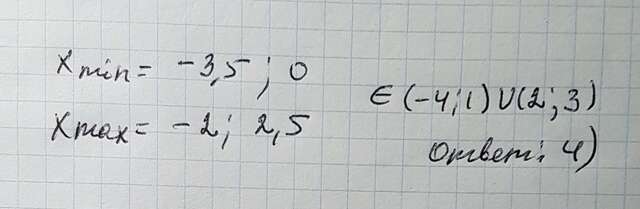 Xmin= -3,5 ; 0
Xmax= -2; 2,5
∈ (-4;1)U(2;3)
Ответ: 4)